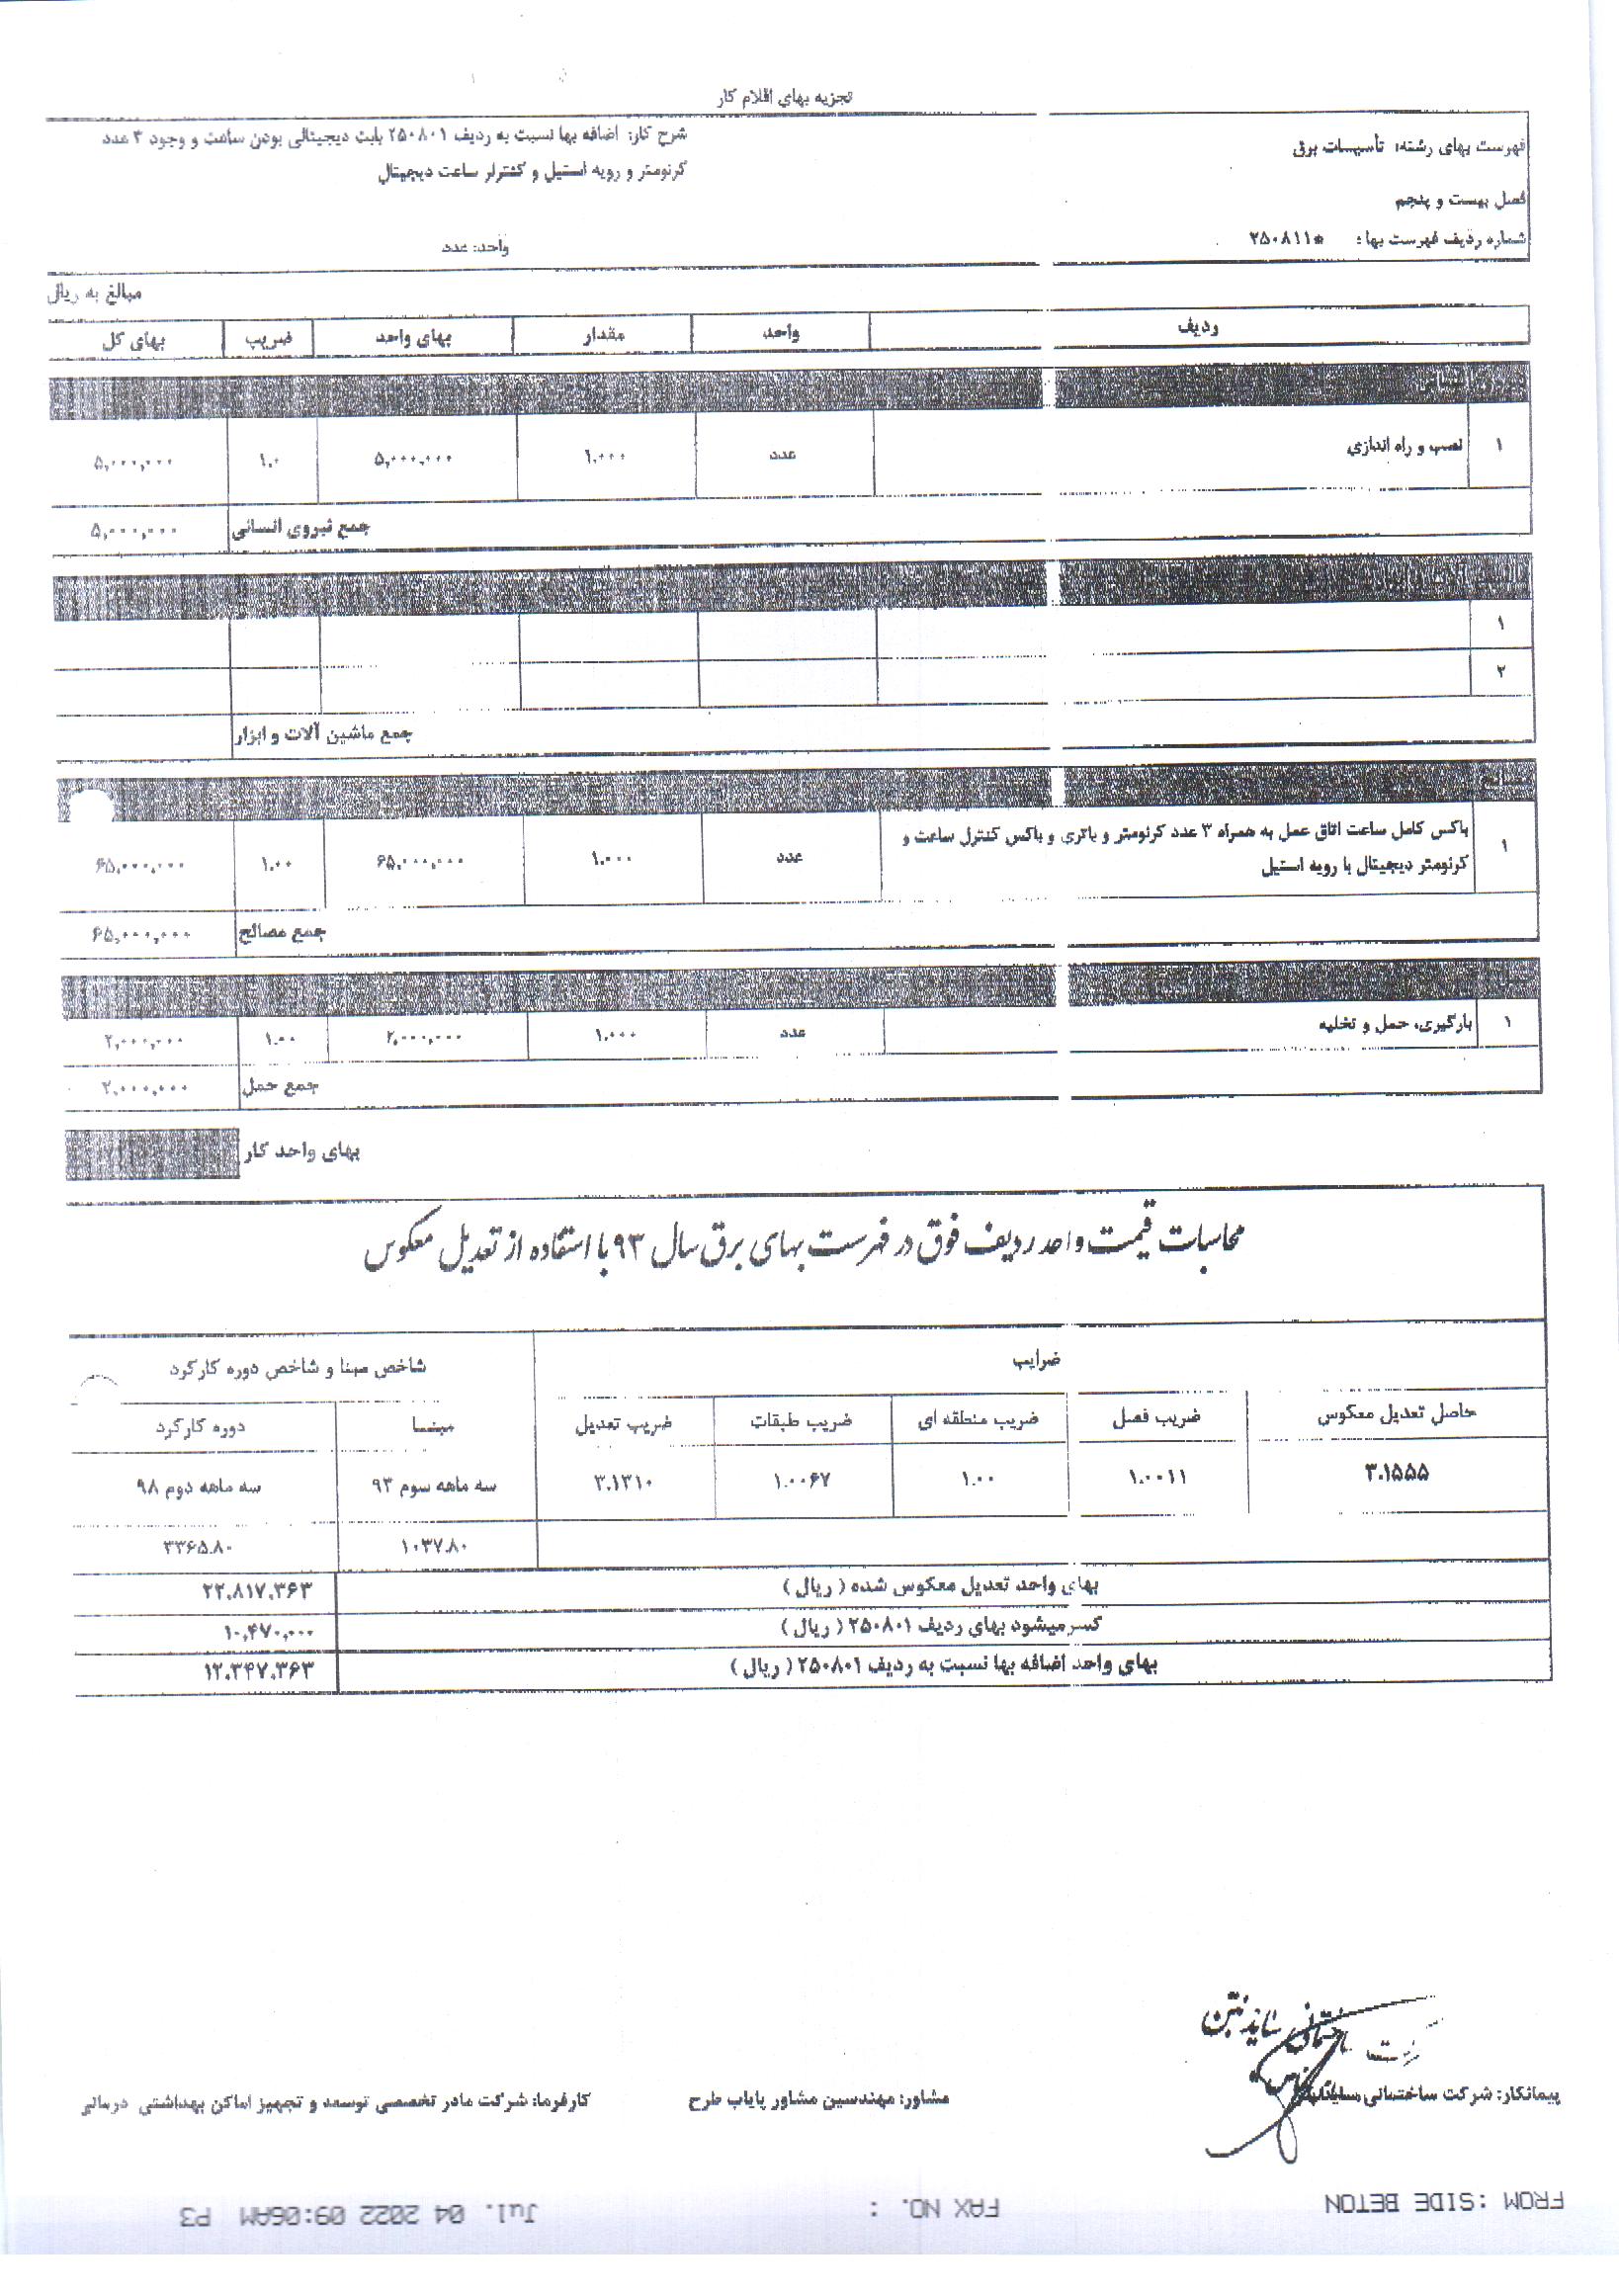 تجزیه بهای اقلام کار
فهرست بهای رشته: تأسیسات برق
فصل بیست و پنجم
شماره ردیف فهرست بها: *۲۵۰۸۱۱
شرح کار: اضافه بها نسبت به ردیف ۲۵۰۸۰۱ بابت دیجیتالی بودن ساعت و وجود ۳ عدد
کرنومتر و رویه استیل و کنترلر ساعت دیجیتال
واحد: عدد
مبالغ به ریال
ردیف واحد مقدار بهای واحد ضریب بهای کل
۱ نصب و راه اندازی عدد ۱.۰۰۰ ۵,۰۰۰,۰۰۰ ۱.۰ ۵,۰۰۰,۰۰۰
جمع نیروی انسانی ۵,۰۰۰,۰۰۰
۱
۲
جمع ماشین آلات و ابزار
مصالح
۱ باکس کامل ساعت اتاق عمل به همراه ۳ عدد کرنومتر و باتری و باکس کنترل ساعت و
کرنومتر دیجیتال با رویه استیل عدد ۱.۰۰۰ ۶۵,۰۰۰,۰۰۰ ۱.۰۰ ۶۵,۰۰۰,۰۰۰
جمع مصالح ۶۵,۰۰۰,۰۰۰
۱ بارگیری، حمل و تخلیه عدد ۱.۰۰۰ ۲,۰۰۰,۰۰۰ ۱.۰۰ ۲,۰۰۰,۰۰۰
جمع حمل ۲,۰۰۰,۰۰۰
بهای واحد کار
محاسبات قیمت واحد ردیف فوق در فهرست بهای برق سال ۹۳ با استفاده از تعدیل معکوس
ضرایب شاخص مبنا و شاخص دوره کارکرد
حاصل تعدیل معکوس ضریب فصل ضریب منطقه ای ضریب طبقات ضریب تعدیل مبنـا دوره کارکرد
۳.۱۵۵۵ ۱.۰۰۱۱ ۱.۰۰ ۱.۰۰۶۷ ۳.۱۳۱۰ سه ماهه سوم ۹۳ سه ماهه دوم ۹۸
۱۰۳۷.۸۰ ۳۳۶۵.۸۰
بهای واحد تعدیل معکوس شده ( ریال ) ۲۲.۸۱۷.۳۶۳
کسر میشود بهای ردیف ۲۵۰۸۰۱ ( ریال ) ۱۰,۴۷۰,۰۰۰
بهای واحد اضافه بها نسبت به ردیف ۲۵۰۸۰۱ ( ریال ) ۱۲.۳۴۷.۳۶۳
پیمانکار: شرکت ساختمانی مشاور: مهندسین مشاور پایاب طرح کارفرما: شرکت مادر تخصصی توسعه و تجهیز اماکن بهداشتی درمانی
FROM :SIDE BETON FAX NO. : Jul. 04 2022 09:06AM P3